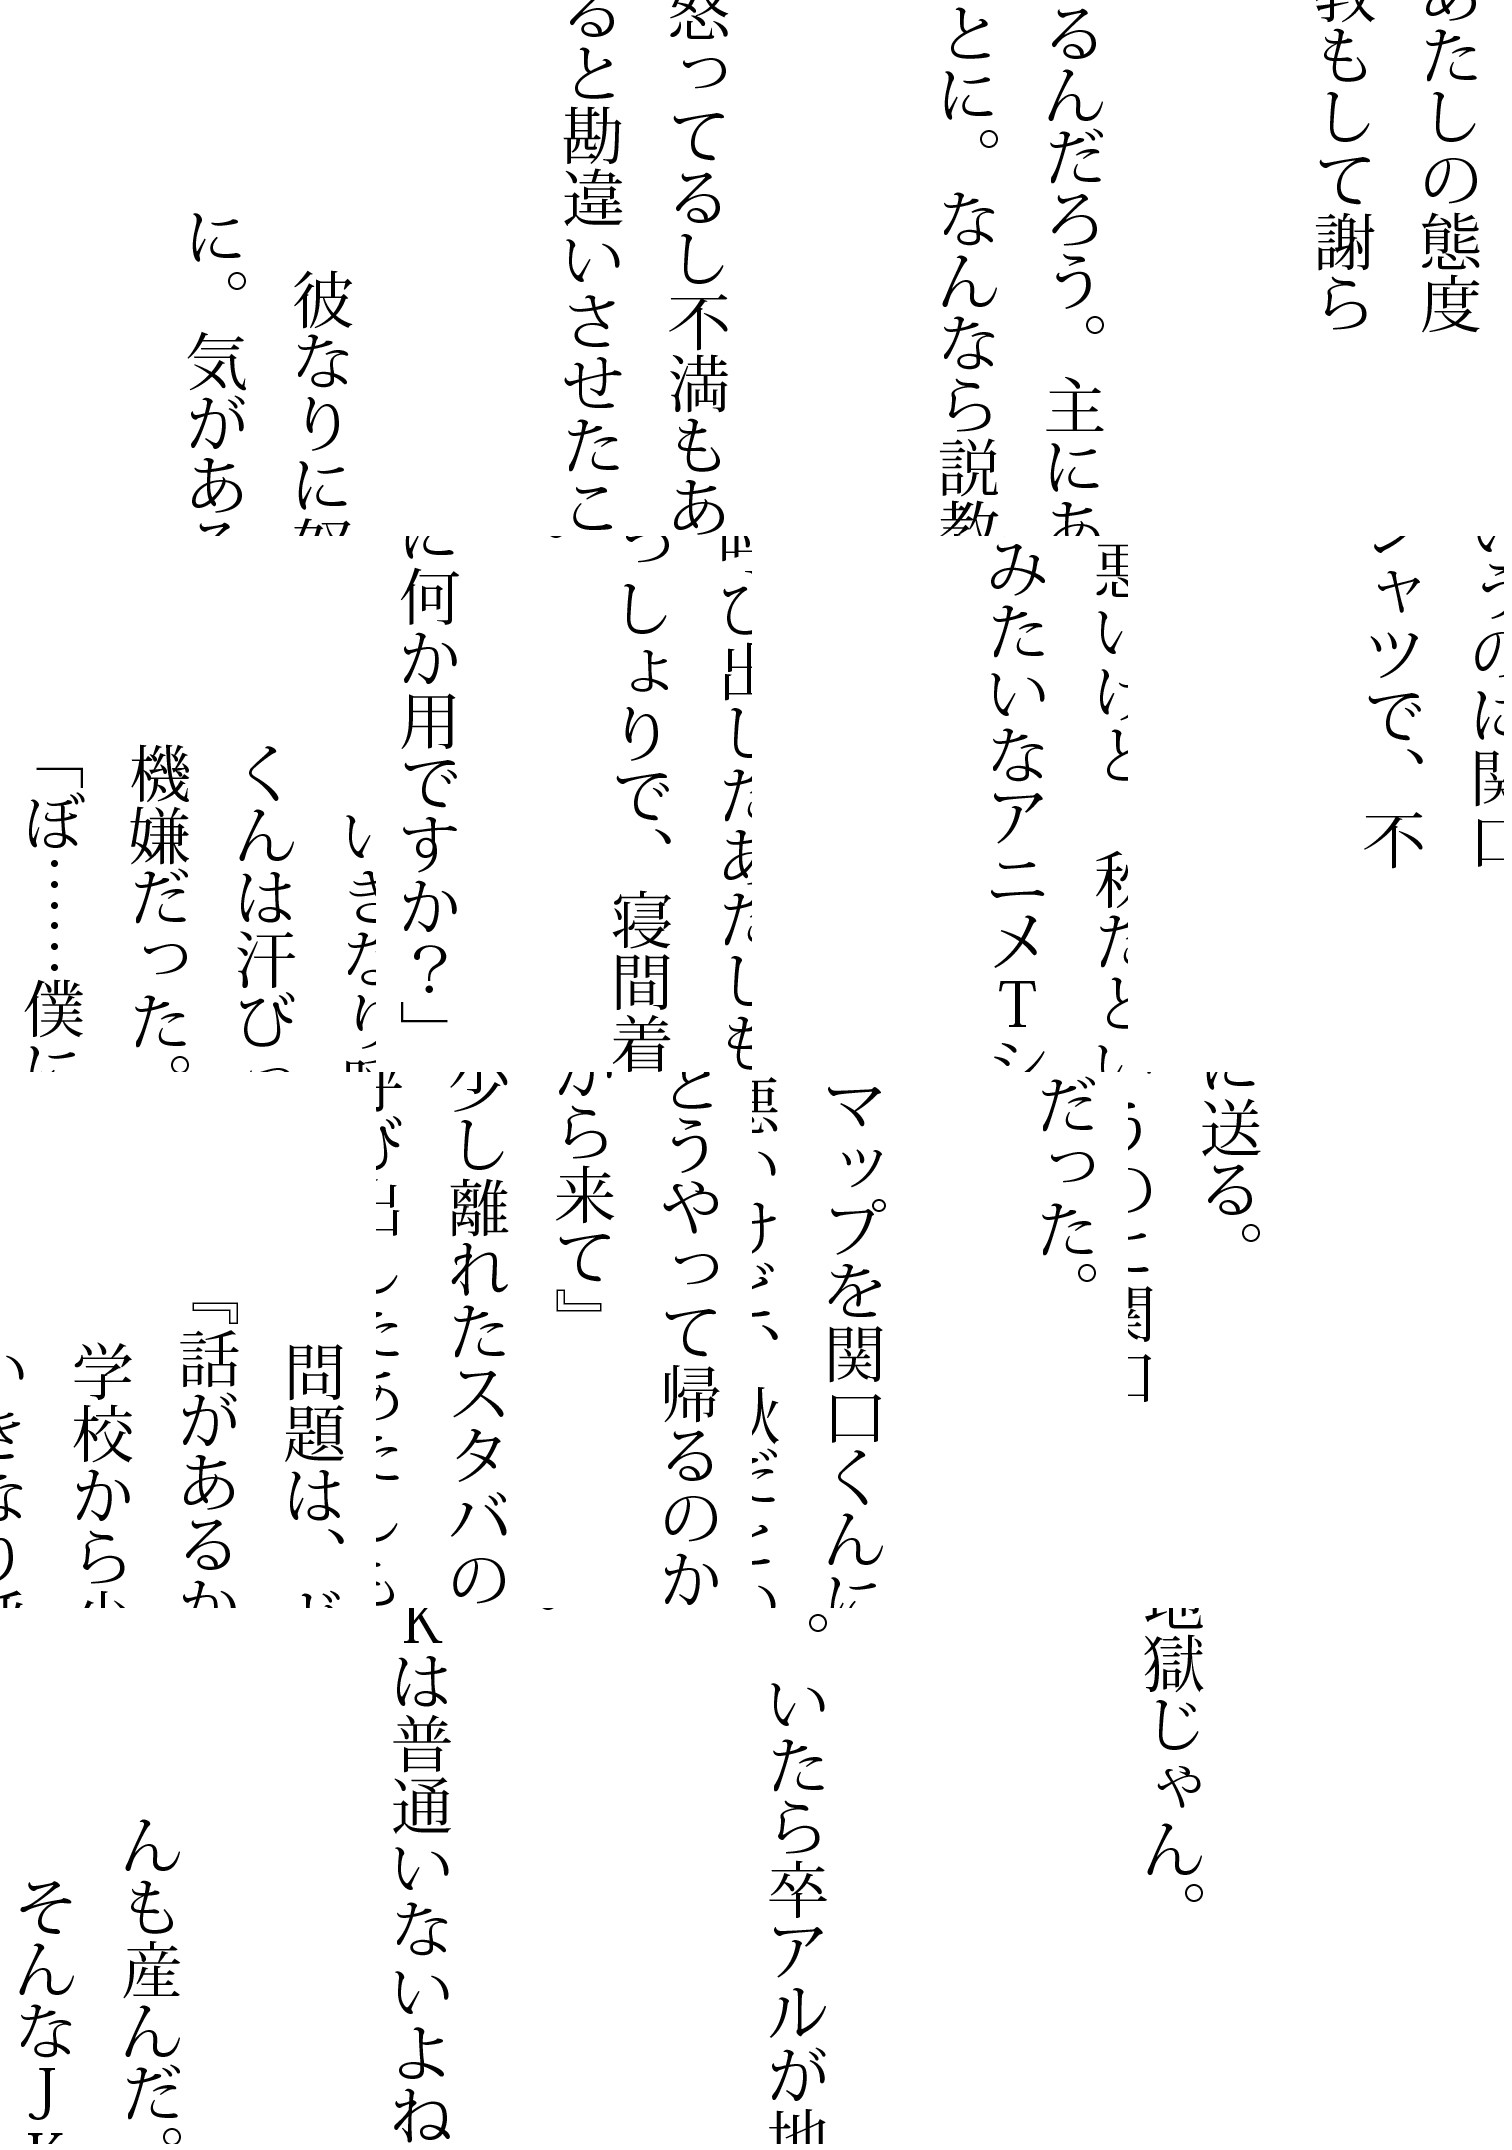 んも産んだ。
そんなJKは普通いないよね。いたら卒アルが地獄じゃん。
問題は、どうやって帰るのかだった。
『話があるから来て』
学校から少し離れたスタバのマップを関口くんに送る。
いきなり呼び出したあたしも悪いけど、秋だというのに関口
くんは汗びっしょりで、寝間着みたいなアニメTシャツで、不
機嫌だった。
「ぼ……僕に何か用ですか？」
彼なりに怒ってるし不満もあるんだろう。主にあたしの態度
に。気があると勘違いさせたことに。なんなら説教もして謝ら